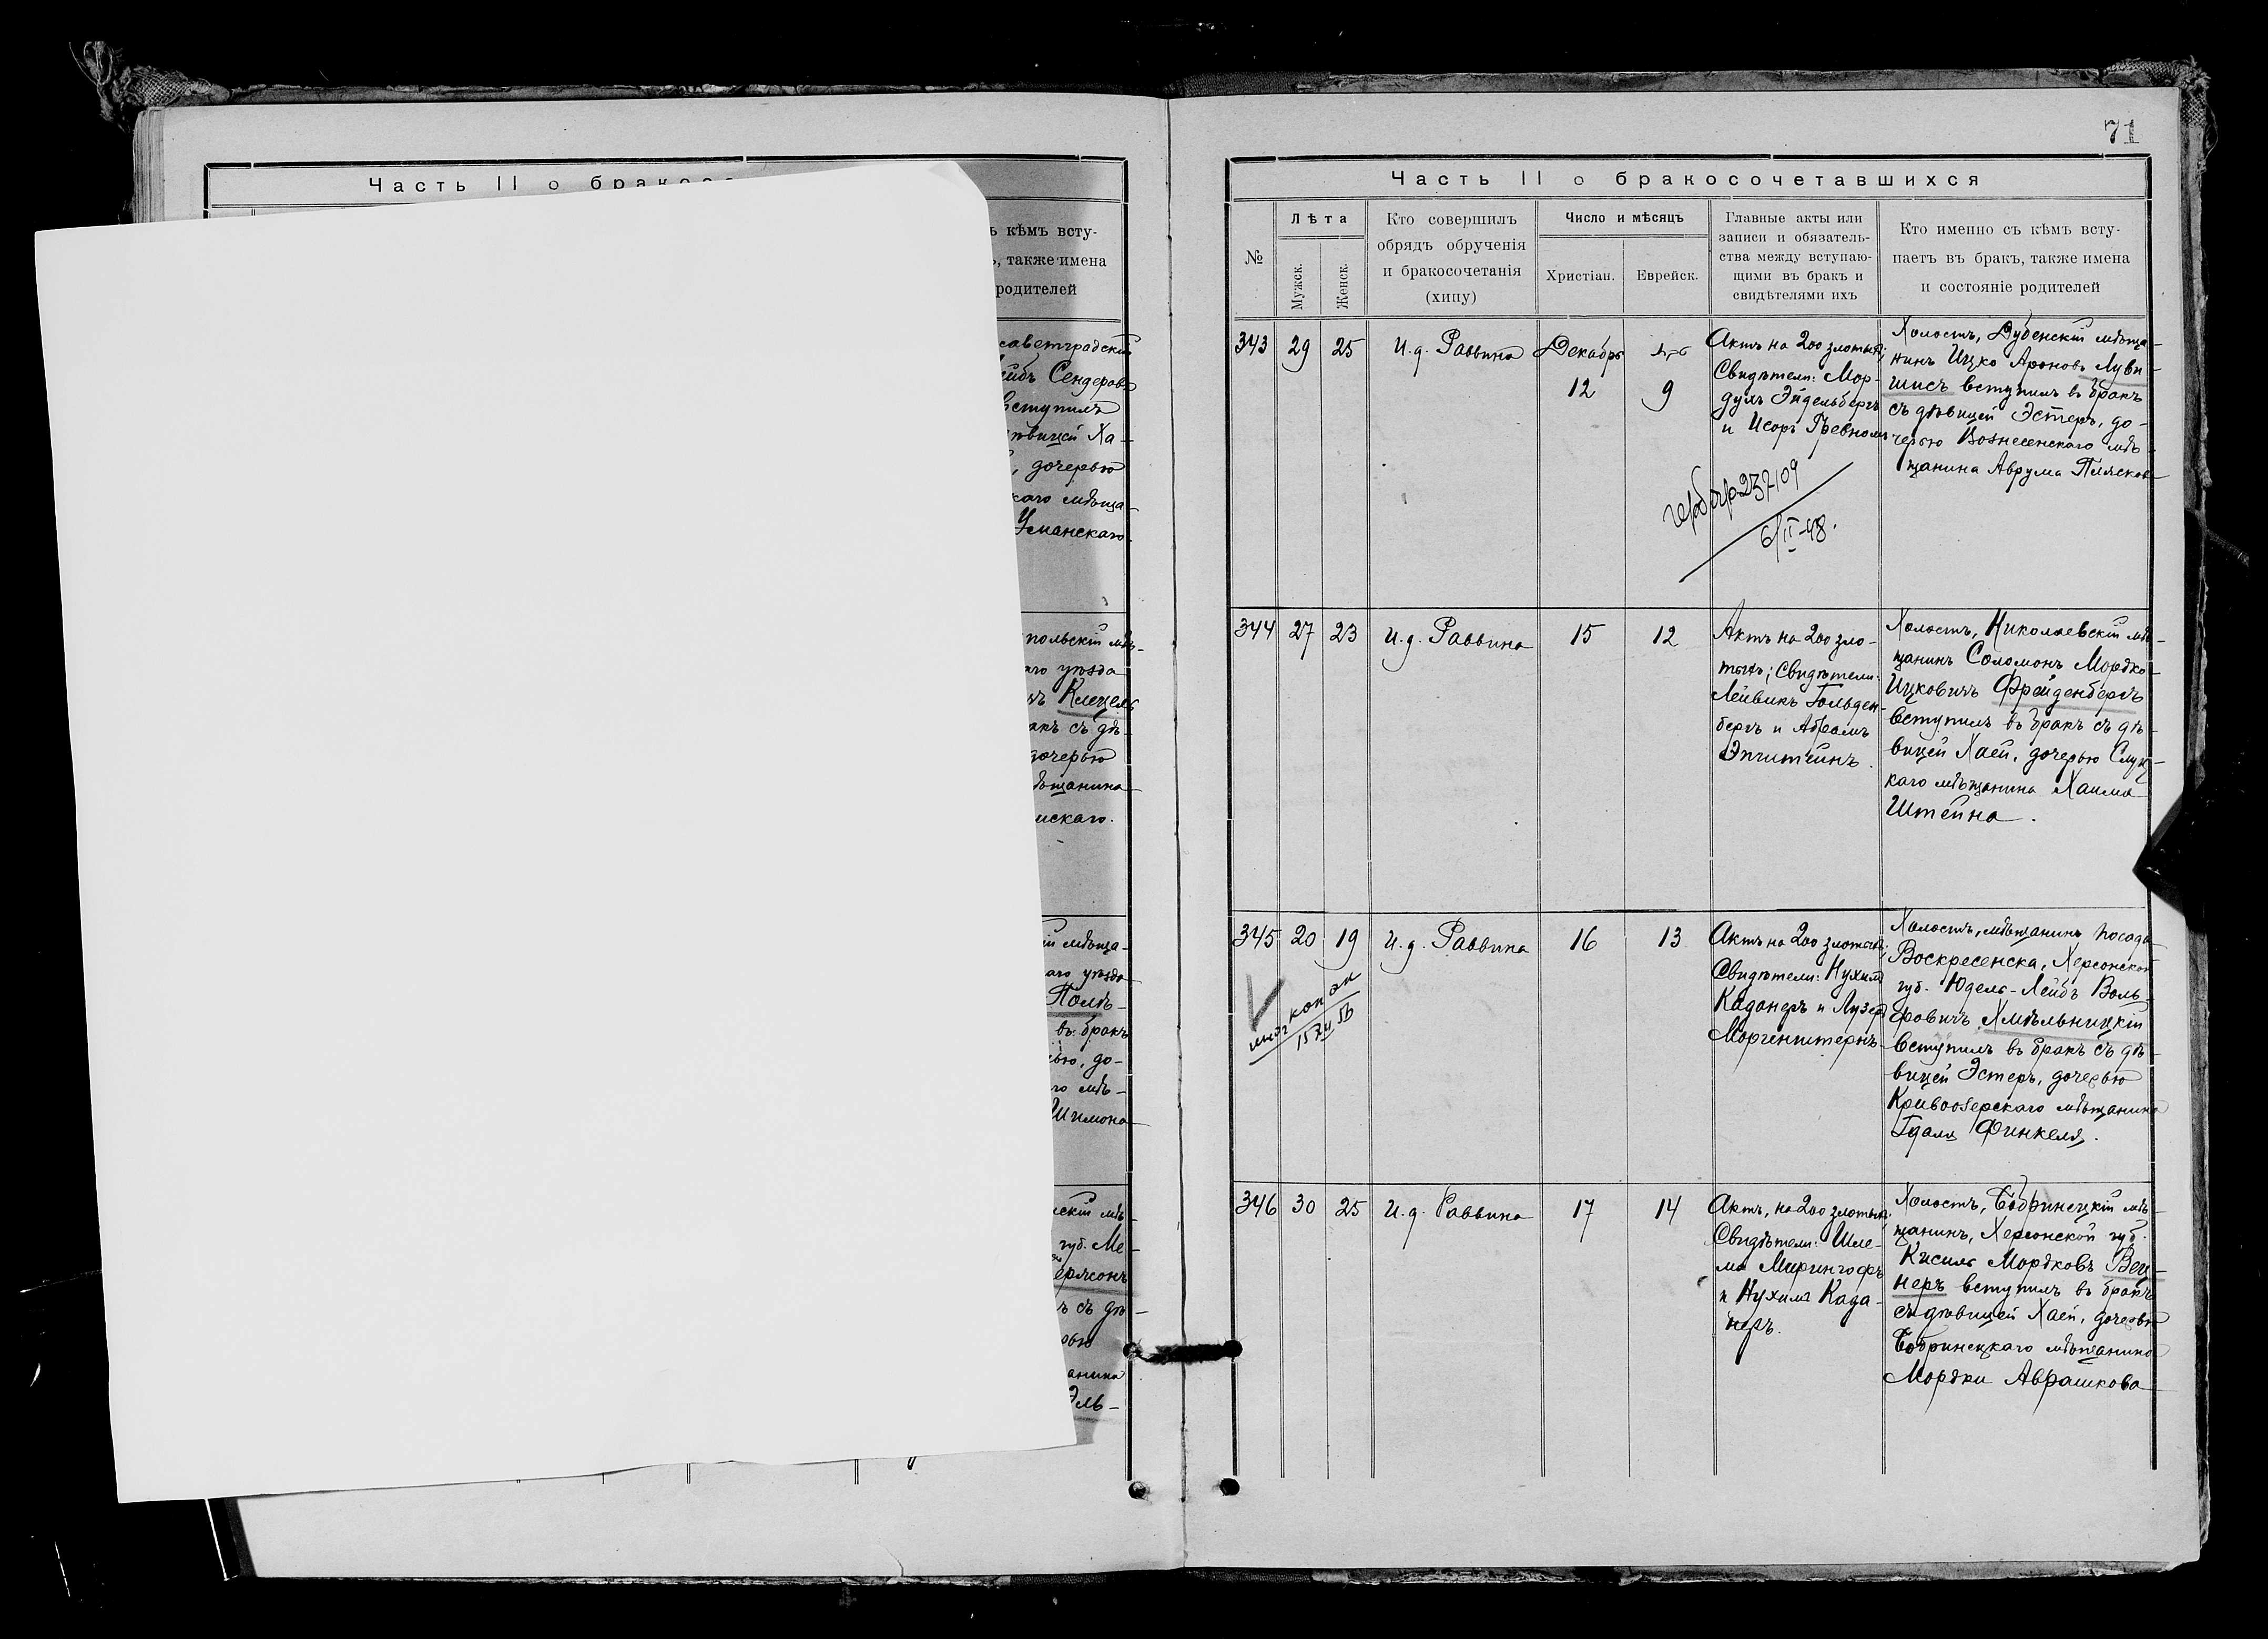 Часть II о бракосо
ъ кѣмъ всту-
ъ, также имена
родителей
саветградскій
Лейбъ Сендеровъ
вступилъ
дѣвицей Ха-
, дочерью
скаго мѣща-
Уманскаго.
польскій мѣ-
аго уѣзда
Клецель
акъ съ дѣ-
дочерью
ѣщанина
искаго.
ій мѣща-
аго уѣзда
Полѣ-
въ бракъ
, до-
го мѣ-
Шимона
скій мѣ-
губ. Ме-
ерсонъ
ъ съ дѣ-
рью
анина
Эль-
71
Часть II о бракосочетавшихся
№
Лѣта
Мужск.
Женск.
Кто совершилъ
обрядъ обрученія
и бракосочетанія
(хипу)
Число и мѣсяцъ
Христіан.
Еврейск.
Главные акты или
записи и обязатель-
ства между вступаю-
щими въ бракъ и
свидѣтелями ихъ
Кто именно съ кѣмъ всту-
паетъ въ бракъ, также имена
и состояніе родителей
343
29
25
И. д. Раввина
Декабрь
12
9
Актъ на 200 злотыхъ;
Свидѣтели: Мор-
дулъ Эйдельбергъ
и Исоръ
Холостъ, Дубенскій мѣща-
нинъ Ицко Ароновъ Луви-
шисъ вступилъ въ бракъ
съ дѣвицей Эстеръ, до-
черью Вознесенскаго мѣ-
щанина Аврума Пляскова
237/09
6/II-48.
344
27
23
И. д. Раввина
15
12
Актъ на 200 зло-
тыхъ; Свидѣтели:
Лейвикъ Гольден-
бергъ и Абрамъ
Эпштейнъ.
Холостъ, Николаевскій мѣ-
щанинъ Соломонъ Мордко-
Ицковичъ Фрейденбергъ
вступилъ въ бракъ съ дѣ-
вицей Хаей, дочерью Слуц-
каго мѣщанина Хаима
Штейна.
345
20
19
И. д. Раввина
16
13
Актъ на 200 злотыхъ;
Свидѣтели: Нухимъ
Каданеръ и Лузеръ
Моргенштернъ.
Холостъ, мѣщанинъ посада
Воскресенска, Херсонской
губ. Юдель-Лейбъ Воль-
фовичъ Хмѣльницкій
вступилъ въ бракъ съ дѣ-
вицей Эстеръ, дочерью
Кривоозерскаго мѣщанина
Гдаля Финкеля.
346
30
25
И. д. Раввина
17
14
Актъ, на 200 злотыхъ;
Свидѣтели: Шле-
ма Мирингофъ
и Нухимъ Када-
неръ.
Холостъ, Бобринецкій мѣ-
щанинъ, Херсонской губ.
Кисиль Мордковъ Вец-
неръ вступилъ въ бракъ
съ дѣвицей Хаей, дочерью
Бобринецкаго мѣщанина
Мордки Аврашкова